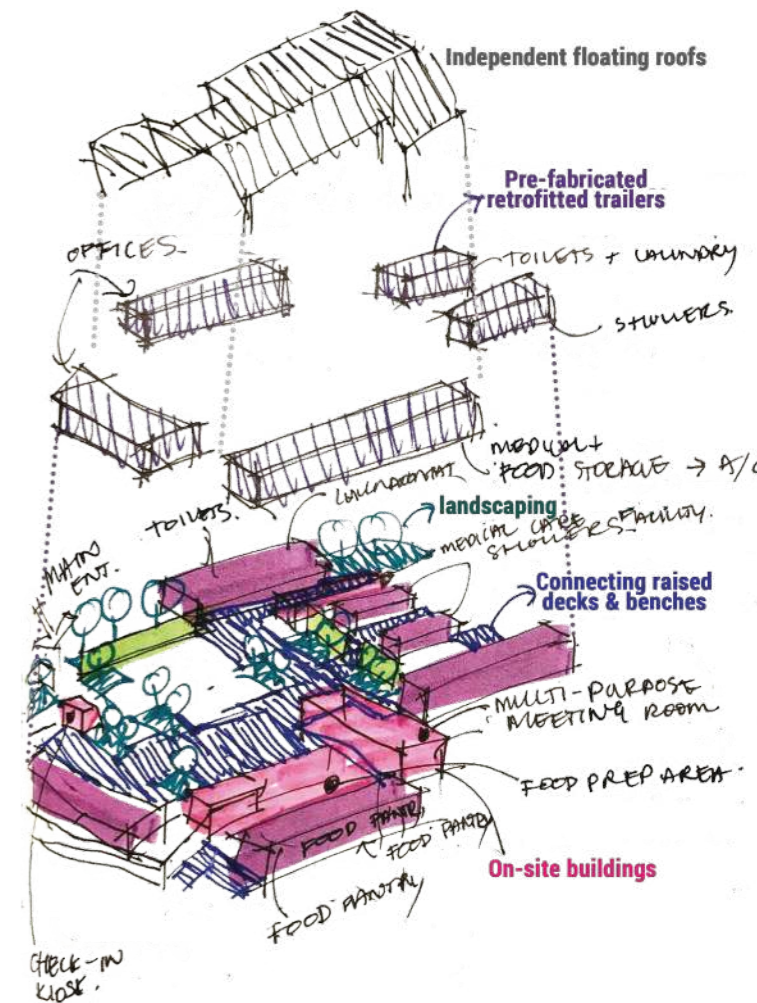 Independent floating roofs
Pre-fabricated
retrofitted trailers
OFFICES
TOILETS + LAUNDRY
SHOWERS.
MEDICAL +
FOOD STORAGE → A/C
LAUNDROMAT
TOILETS.
landscaping
MEDICAL CARE FACILITY.
SHOWERS
MAIN
ENT.
Connecting raised
decks & benches
MULTI-PURPOSE
MEETING ROOM
FOOD PREP AREA.
FOOD PANTRY
FOOD PANTRY
FOOD PANTRY
On-site buildings
CHECK-IN
KIOSK.